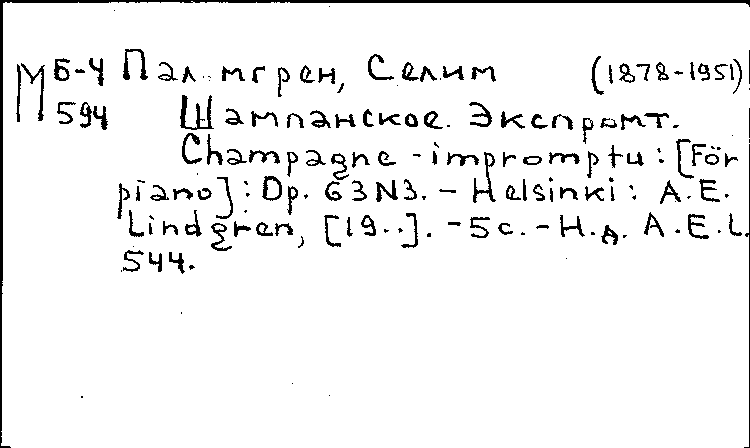 М Б-4 Палмгрен, Селим (1878-1951)
594 Шампанское. Экспромт.
Champagne-impromptu: [För
piano]: Op. 63 N3. – Helsinki: A.E.
Lindgren, [19..]. – 5 с. – Н.д. A.E.L.
544.